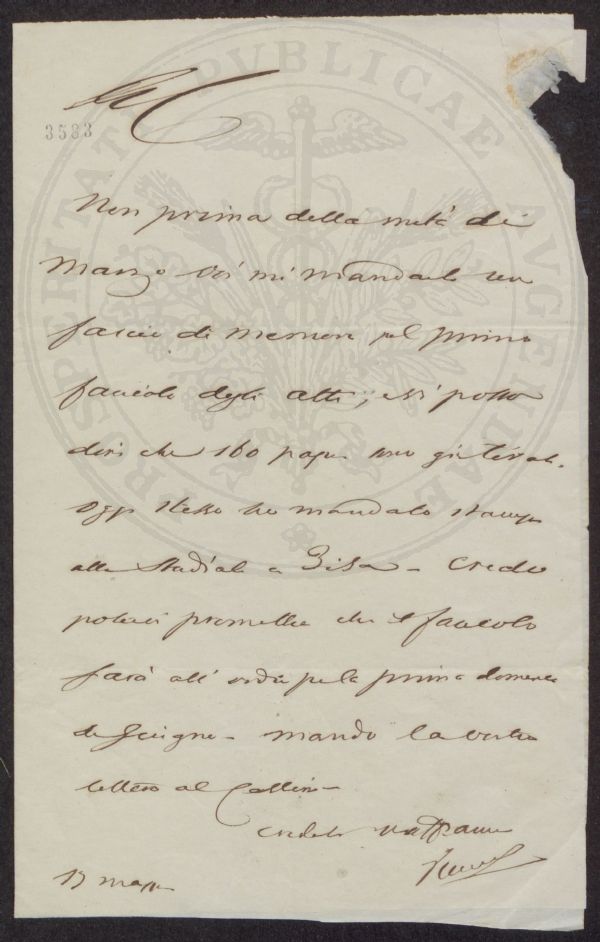 PROSPERITATI PVBLICAE AVGENDAE
3583
Non prima della metà di
Marzo Voi mi mandaste un
fascio di memorie pel primo
fascicolo degli atti; vi posso
dire che 160 pagine sono già tirate.
Oggi stesso ho mandato stampe
alla Stadiale a Pisa – Credo
potervi promettere che il fascicolo
sarà all'ordine per la prima domenica
di Giugno – mando la vostra
lettera al
credete
13 mag